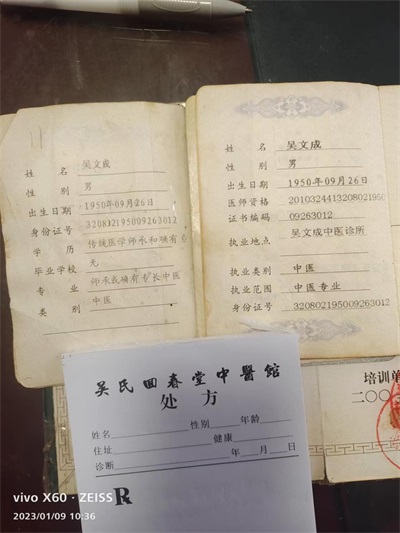 姓 名 吴文成
性 别 男
出生日期 1950年09月26日
身份证号 320802195009263012
学 历 传统医学师承和确有专
毕业学校 无
专 业 师承或确有专长中医
类 别 中医
姓 名 吴文成
性 别 男
出生日期 1950年09月26日
医师资格 201032441320802195
证书编码 09263012
执业地点 吴文成中医诊所
执业类别 中医
执业范围 中医专业
身份证号 320802195009263012
吴氏回春堂中醫館
处 方
姓名 性别 年龄
住址 健康
诊断 年 月 日
R
培训单
二〇〇
vivo X60 · ZEISS
2023/01/09 10:36